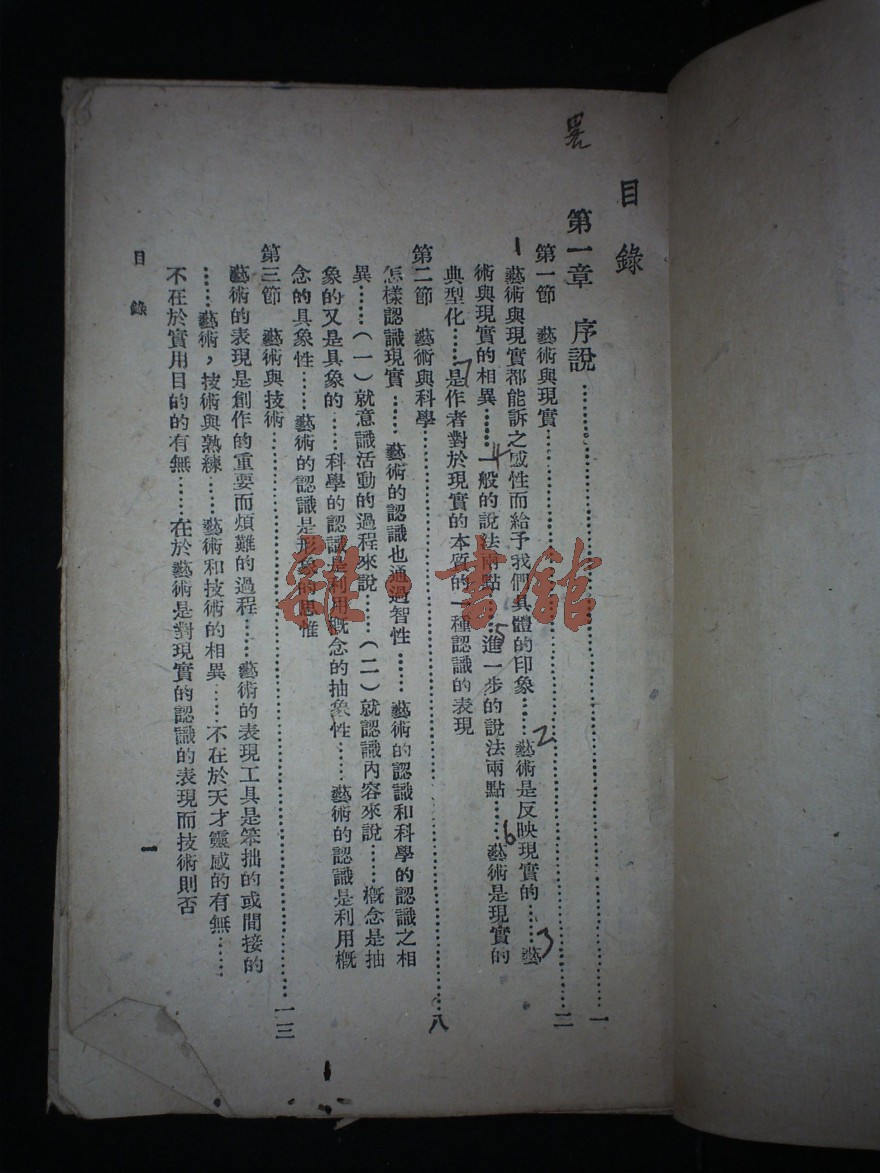 目錄
第一章 序說……………………一
第一節 藝術與現實……………………二
藝術與現實都能訴之感性而給予我們具體的印象……藝術是反映現實的……藝
術與現實的相異……一般的說法兩點……進一步的說法兩點……藝術是現實的
典型化……是作者對於現實的本質的一種認識的表現
第二節 藝術與科學……………………八
怎樣認識現實……藝術的認識也通過智性……藝術的認識和科學的認識之相
異……(一)就意識活動的過程來說……(二)就認識內容來說……概念是抽
象的又是具象的……科學的認識是利用概念的抽象性……藝術的認識是利用概
念的具象性……藝術的認識是形象的思惟
第三節 藝術與技術……………………一三
藝術的表現是創作的重要而煩難的過程……藝術的表現工具是笨拙的或間接的
……藝術,技術與熟練……藝術和技術的相異……不在於天才靈感的有無……
不在於實用目的的有無……在於藝術是對現實的認識的表現而技術則否
目錄
一
1
2
3
4
5
6
7
雜·書館